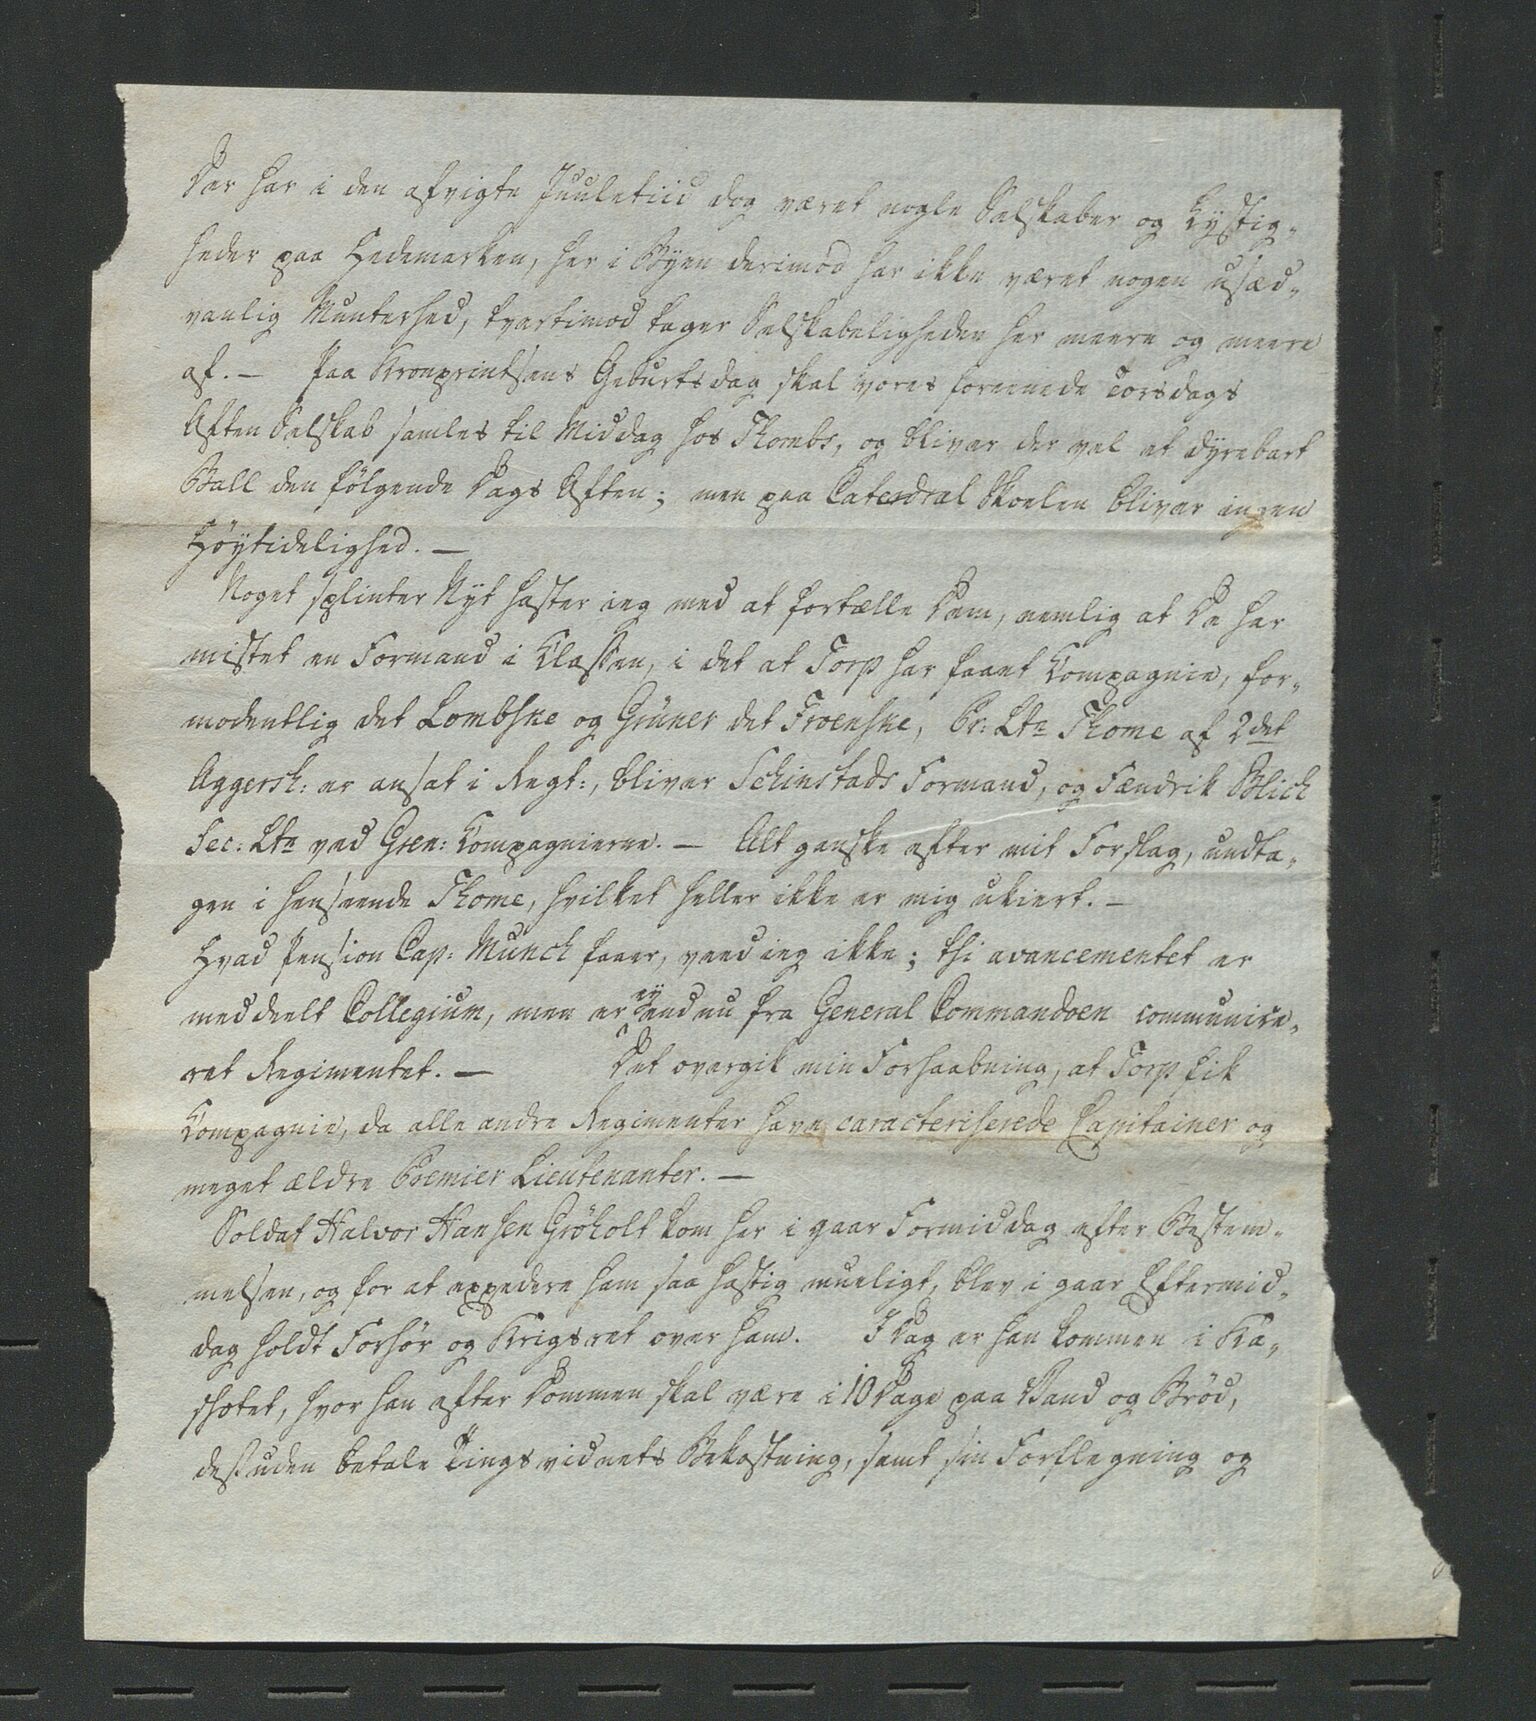 Der har i den afvigte Juuletiid dog været nogle Selskaber og Lystig-
heder paa Hedemarken, her i Byen derimod har ikke været nogen usæd-
vanlig Munterhed, tvertimod tager Selskabeligheden her meere og meere
af. — Paa Kronprintsens Geburtsdag skal vores forenede Torsdags
Aften Selskab samles til Middag hos Thombs, og bliver der vel et dyrebart
Ball den følgende Dags Aften; men paa Catedral Skoelen bliver ingen
Høytidelighed. —
Noget splinter Nyt haster ieg med at fortælle Dem, nemlig at De har
mistet en Formand i Classen, i det at Torp har faaet Compagnie, for-
modentlig det Lombske og Grüner det Froenske, Pr: Ltn Thome af 2det
Aggersh: er ansat i Regt:, bliver Schinstads Formand, og Fændrik Blich
Sec: Ltn ved Gren: Compagnierne. — Alt ganske efter mit Forslag, undta-
gen i henseende Thome, hvilket heller ikke er mig ukiert. —
Hvad Pension Cap: Munch faaer, veed ieg ikke; thi avancementet er
meddeelt Collegium, men er ey endnu fra General Commandoen communice-
ret Regimentet. — Det overgik min Forhaabning, at Torp fik
Compagnie, da alle andre Regimenter have caracteriserede Capitainer og
meget ældre Premier Lieutenanter. —
Soldat Halvor Hansen Gröholt kom her i gaar Formiddag efter Bestem-
melsen, og for at expedere ham saa hastig mueligt, blev i gaar Eftermid-
dag holdt Forhør og Krigsret over ham. I Dag er han kommen i Ka-
schotet, hvor han efter Dommen skal være i 10 Dage paa Vand og Brød,
desuden betale Tingsvidnets Bekostning, samt sin Forflegning og